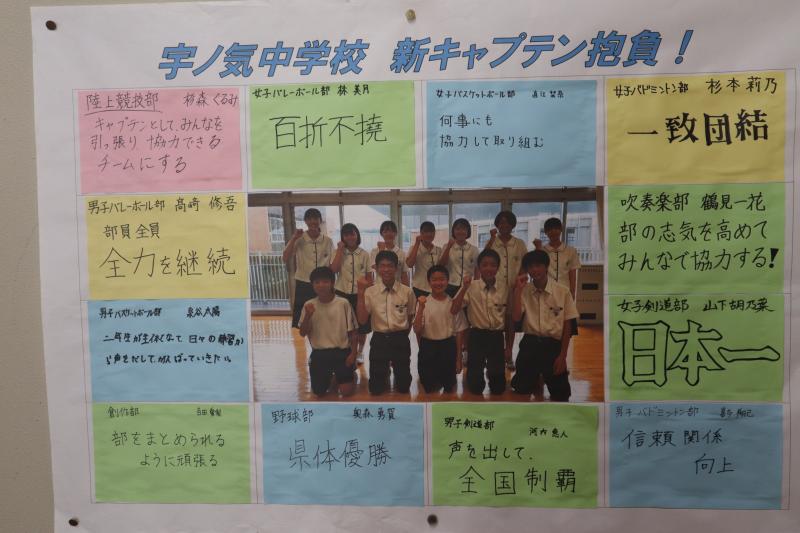 宇ノ気中学校 新キャプテン抱負！
陸上競技部 杉森 くるみ
キャプテンとして、みんなを
引っ張り 協力できる
チームにする
女子バレーボール部 林 美月
百折不撓
女子バスケットボール部
何事にも
協力して取り組む
女子バドミントン部 杉本 莉乃
一致団結
男子バレーボール部 高崎 修吾
部員 全員
全力を継続
吹奏楽部 鶴見 一花
部の志気を高めて
みんなで協力する！
男子バスケットボール部
二年生が主体になって 日々の練習か
ら声をだして、がんばっていきたい。
女子剣道部 山下 胡乃葉
日本一
創作部
部をまとめられる
ように頑張る
野球部 奥森 勇賀
県体優勝
男子剣道部 河内 悠人
声を出して、
全国制覇
男子 バドミントン部
信頼 関係
向上